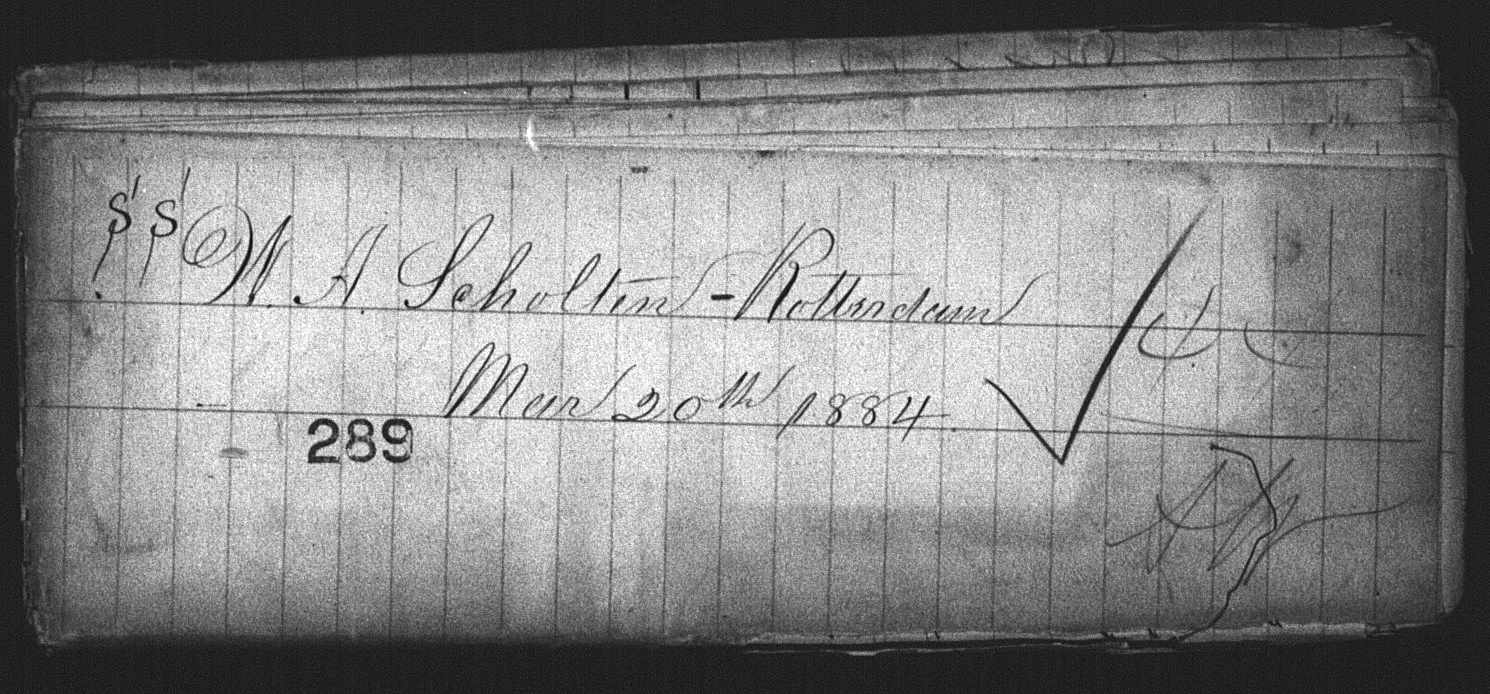 SS W. A. Scholten - Rotterdam
Mar 20th 1884.
289